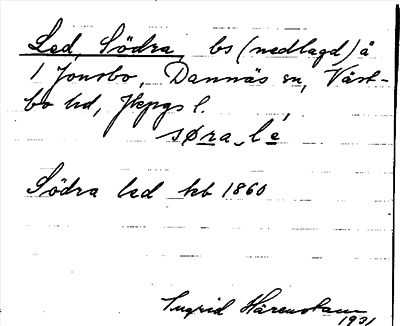 Led, Södra, bs (nedlagd) å
1 Jonsbo, Dannäs sn, Väst-
bo hd, Jkpgs l.
søra lé
Södra Led kb 1860
Ingrid Härenstam
1931